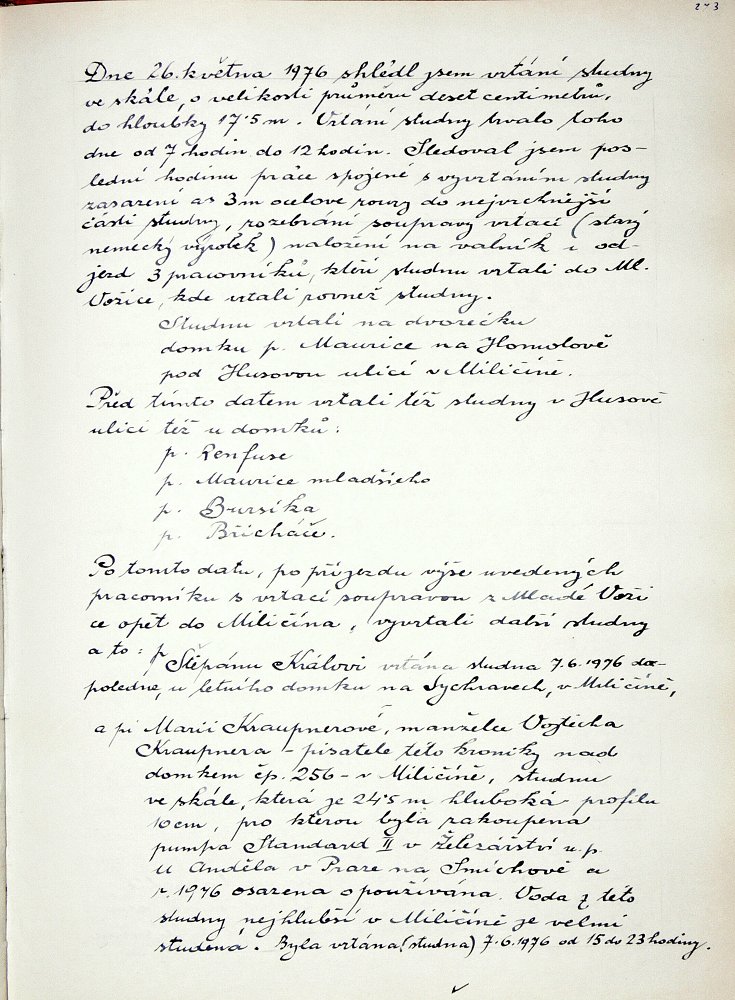 273
Dne 26. května 1976 shlédl jsem vrtání studny
ve skále, o velikosti průměru deset centimetrů,
do hloubky 17·5 m. Vrtání studny trvalo toho
dne od 7 hodin do 12 hodin. Sledoval jsem pos-
lední hodinu práce spojené s vyvrtáním studny
zasazení as 3 m ocelové roury do nejvrchnější
části studny, rozebrání soupravy vrtací (starý
německý výrobek) naložení na valník i od-
jezd 3 pracovníků, kteří studnu vrtali do Ml.
Vožice, kde vrtali rovněž studny.
Studnu vrtali na dvorečku
domku p. Maurice na Homolově
pod Husovou ulicí v Miličíně.
Před tímto datem vrtali též studny v Husově
ulici též u domků:
p. Renfuse
p. Maurice mladšího
p. Bursíka
p. Břicháče.
Po tomto datu, po příjezdu výše uvedených
pracovníku s vrtací soupravou z Mladé Voži
ce opět do Miličína, vyvrtali další studny
a to: p
Štěpánu Královi vrtána studna 7.6.1976 do-
poledne, u letního domku na Sychravech, v Miličíně,
a pí Marii Kraupnerové, manželce Vojtěcha
Kraupnera - pisatele této kroniky nad
domkem čp. 256 - v Miličíně, studnu
ve skále, která je 24·5 m hluboká profilu
10 cm, pro kterou byla zakoupena
pumpa Standard II v Železářství n.p.
U Anděla v Praze na Smíchově a
r. 1976 osazena a používána. Voda z této
studny nejhlubší v Miličíně je velmi
studená. Byla vrtána (studna) 7.6.1976 od 15 do 23 hodiny.